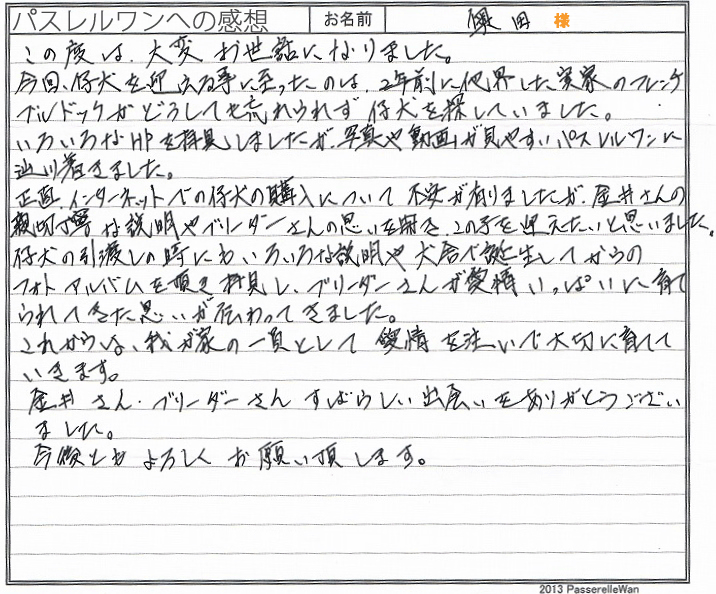 パスレルワンへの感想 お名前 様
この度は、大変お世話になりました。
今回、仔犬を迎える事に至ったのは、2年前に他界した実家のフレンチ
ブルドックがどうしても忘れられず仔犬を探していました。
いろいろなHPを拝見しましたが、写真や動画が見やすいパスレルワンに
辿り着きました。
正直、インターネットでの仔犬の購入について不安が有りましたが、金井さんの
親切丁寧な説明やブリーダーさんの思いを聞き、この子を迎えたいと思いました。
仔犬の引渡しの時にもいろいろな説明や犬舎で誕生してからの
フォトアルバムを頂き拝見し、ブリーダーさんが愛情いっぱいに育て
られてきた思いが伝わってきました。
これからは、我が家の一員として愛情を注いで大切に育てて
いきます。
金井さん・ブリーダーさんすばらしい出会いをありがとうござい
ました。
今後ともよろしくお願い頂します。
2013 PasserelleWan